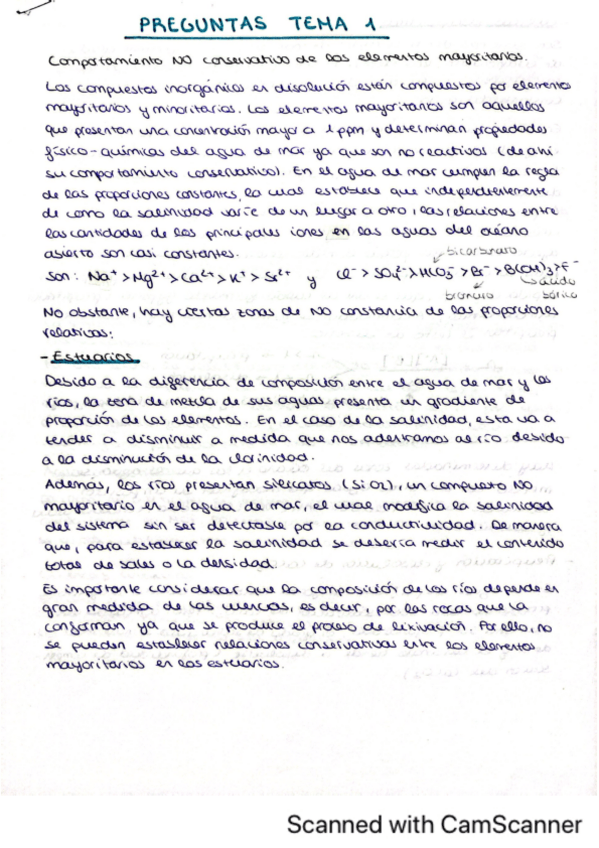 PREGUNTAS TEMA 1
Comportamiento NO conservativo de los elementos mayoritarios.
Los compuestos inorgánicos en disolución están compuestos por elementos
mayoritarios y minoritarios. Los elementos mayoritarios son aquellos
que presentan una concentración mayor a 1 ppm y determinan propiedades
físico-químicas del agua de mar ya que son no reactivos (de ahí
su comportamiento conservativo). En el agua de mar cumplen la regla
de las proporciones constantes, la cual establece que independientemente
de como la salinidad varíe de un lugar a otro, las relaciones entre
las cantidades de los principales iones en las aguas del océano
abierto son casi constantes.
bicarbonato
Son: Na⁺ > Mg²⁺ > Ca²⁺ > K⁺ > Sr²⁺ y Cl⁻ > SO₄²⁻ > HCO₃⁻ > Br⁻ > B(OH)₃ > F⁻
bromuro ácido bórico
No obstante, hay ciertas zonas de NO constancia de las proporciones
relativas:
- Estuarios
Debido a la diferencia de composición entre el agua de mar y los
ríos, la zona de mezcla de sus aguas presenta un gradiente de
proporción de los elementos. En el caso de la salinidad, esta va a
tender a disminuir a medida que nos adentramos al río debido
a la disminución de la clorinidad.
Además, los ríos presentan silicatos (SiO₂), un compuesto NO
mayoritario en el agua de mar, el cual modifica la salinidad
del sistema sin ser detectable por la conductividad. De manera
que, para establecer la salinidad se debería medir el contenido
total de sales o la densidad.
Es importante considerar que la composición de los ríos depende en
gran medida de las cuencas, es decir, por las rocas que la
conforman ya que se produce el proceso de lixiviación. Por ello, no
se pueden establecer relaciones conservativas entre los elementos
mayoritarios en los estuarios.
Scanned with CamScanner